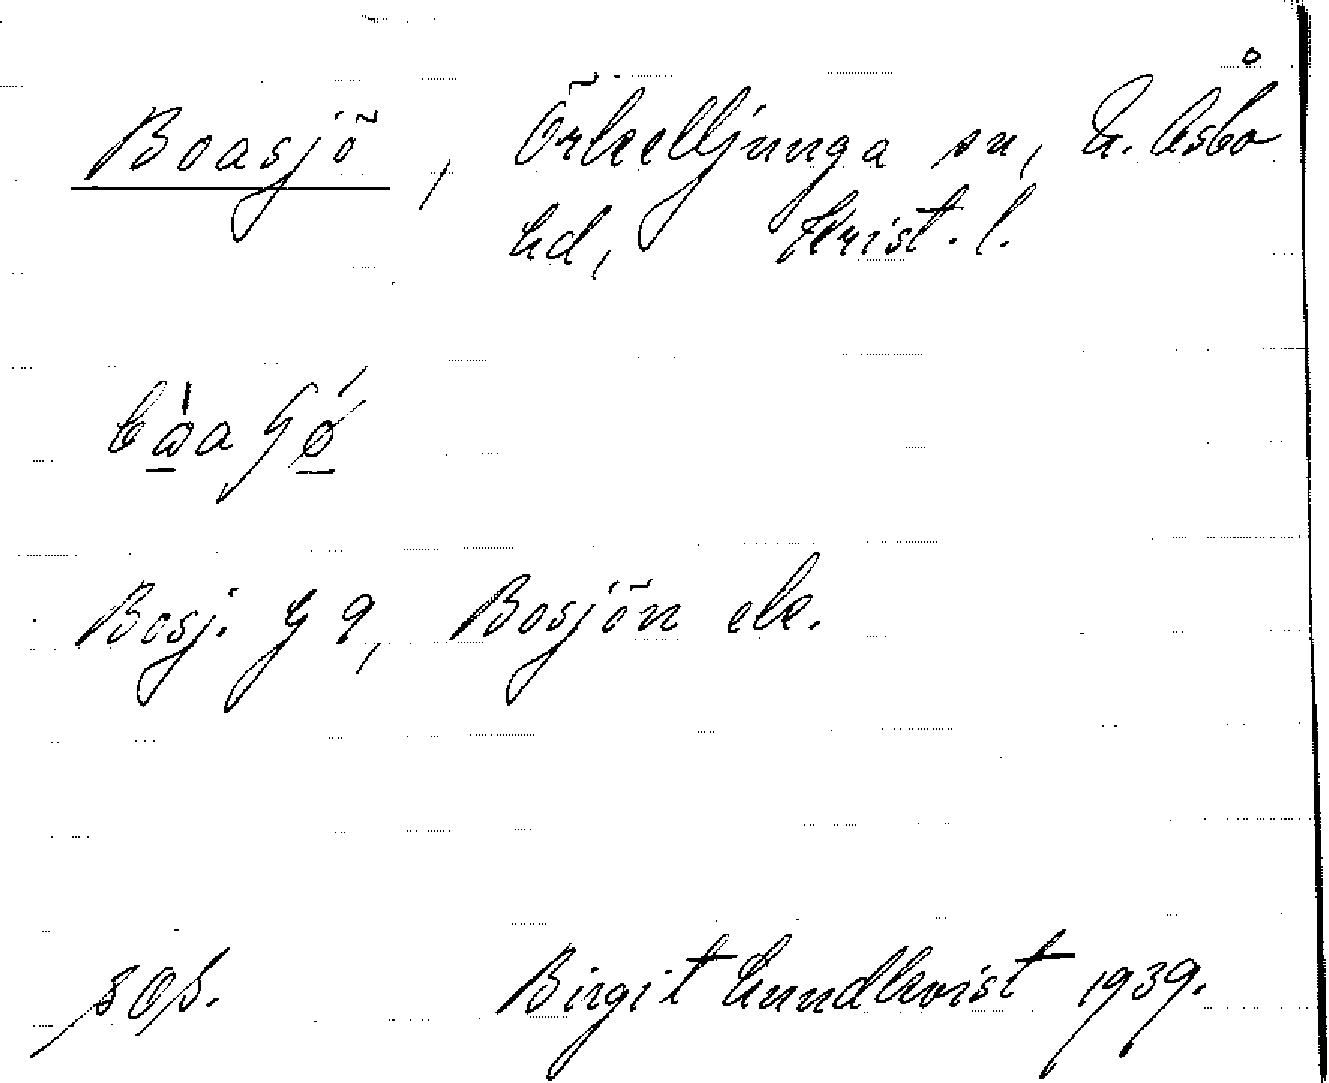 Boasjö, Örkelljunga sn, N. Åsbo
hd, Krist. l.
Bosj. G 9, Bosjön ek.
sop. Birgit Lundkvist 1939.